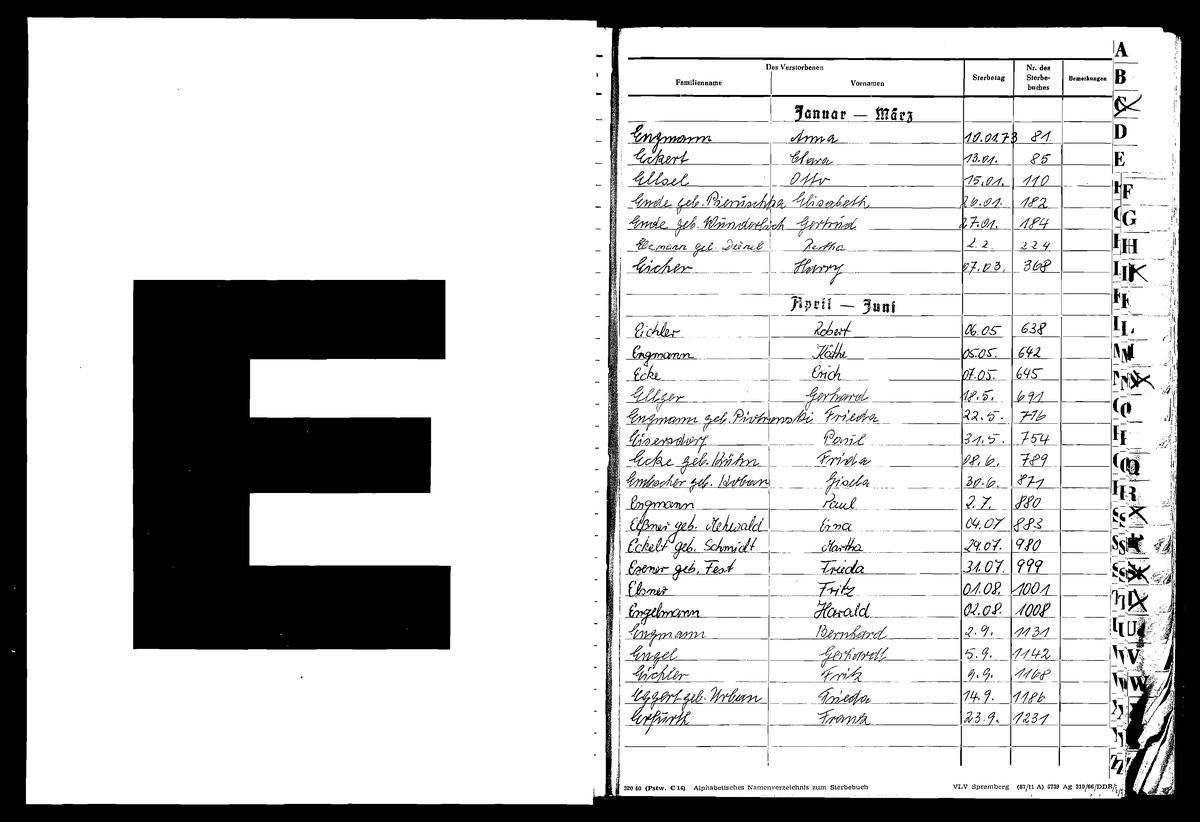 E
Des Verstorbenen
Familienname Vornamen Sterbetag Nr. des Sterbe-buches Bemerkungen
Januar — März
Engmann Anna 10.01.73 81
Eckert Clara 13.01. 85
Ellsel Otto 15.01. 110
Ende geb. Elisabeth 26.01. 182
Ende geb. Wunderlich Gertrud 27.01. 184
geb. Hertha 2.2. 224
Eicher Harry 07.03. 368
April — Juni
Eichler Robert 06.05 638
Engmann Käthe 05.05. 642
Ecke Erich 07.05. 645
Ellger Gerhard 18.5. 691
Engmann geb. Piotrowski Frieda 22.5. 716
Eisersdorf Paul 31.5. 754
Ecke geb. Kühn Frida 08.6. 789
Embacher geb. Gisela 30.6. 871
Engmann Paul 2.7. 880
Elßner geb. Mehwald Erna 04.07 883
Eckelt geb. Schmidt Martha 29.07. 980
Exener geb. Fest Frieda 31.07. 999
Elsner Fritz 01.08. 1001
Engelmann Harald 02.08. 1008
Engmann Bernhard 2.9. 1131
Engel Gerhardt 5.9. 1142
Eichler Fritz 9.9. 1168
Eggert geb. Urban Frieda 14.9. 1186
Erfurth Frank 23.9. 1231
320 40 (Pstw. C 14) Alphabetisches Namenverzeichnis zum Sterbebuch VLV Spremberg (87/11 A) 6739 Ag 310/66/DDR/
A
B
C
D
E
F
G
H
I
K
L
M
N
O
P
Q
R
S
S
S
T
U
V
W